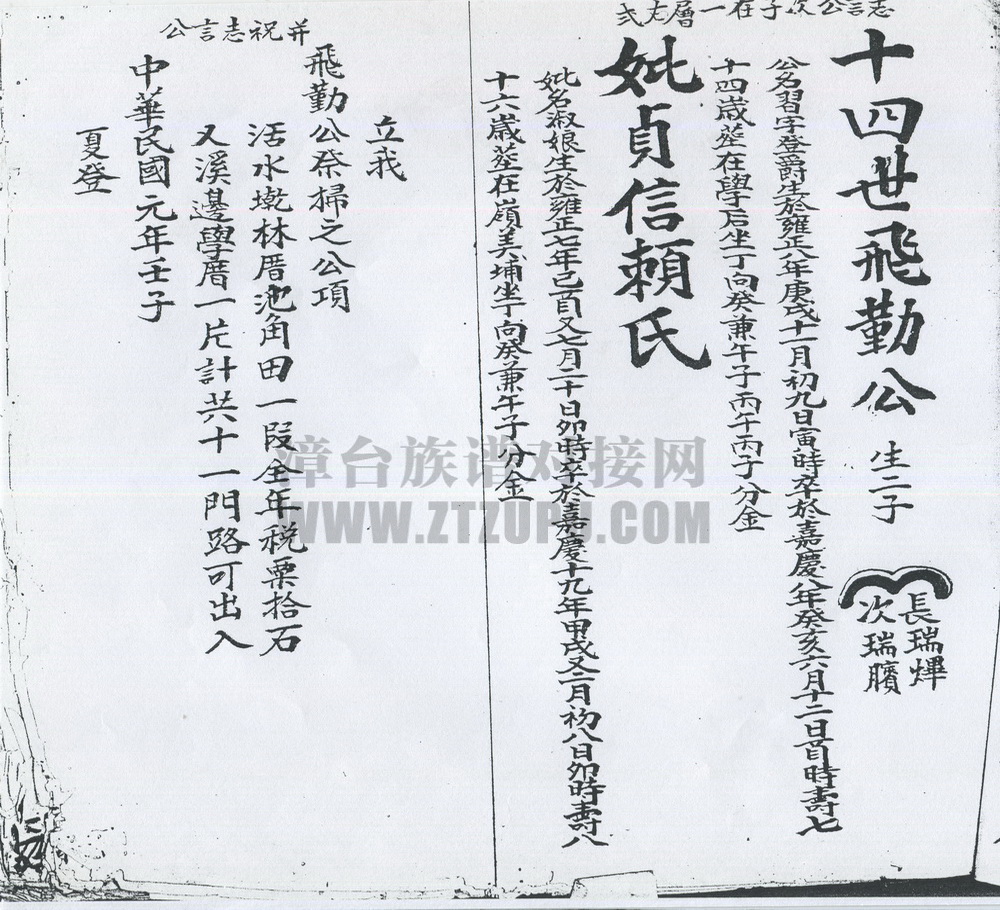 志言公次子在一層左式
十四世飛勤公 生二子 長瑞燁 次瑞臏
公名習字登爵生於雍正八年庚戌十一月初九日寅時卒於嘉慶八年癸亥六月十二日酉時壽七
十四歲塟在學后坐丁向癸兼午子丙午丙子分金
妣貞信賴氏
妣名淑娘生於雍正七年己酉又七月二十日卯時卒於嘉慶十九年甲戌又二月初八日卯時壽八
十六歲塟在嶺美埔坐丁向癸兼午子分金
并祝志言公
立我
飛勤公祭掃之公項
活水墘林厝池角田一段全年稅粟拾石
又溪邊學厝一片計共十一門路可出入
中華民國元年壬子
夏登
漳台族谱对接网
WWW.ZTZUPU.COM